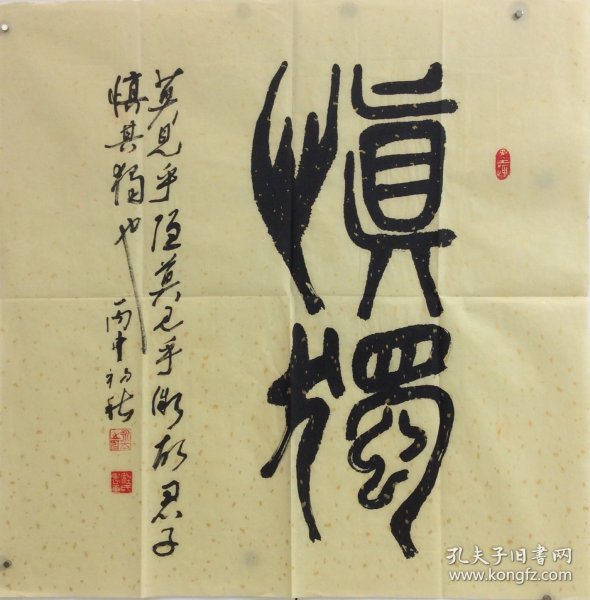 愼獨
莫見乎隐莫见乎微故君子
慎其獨也 丙申初秋
孔夫子旧书网
www.kongfz.com